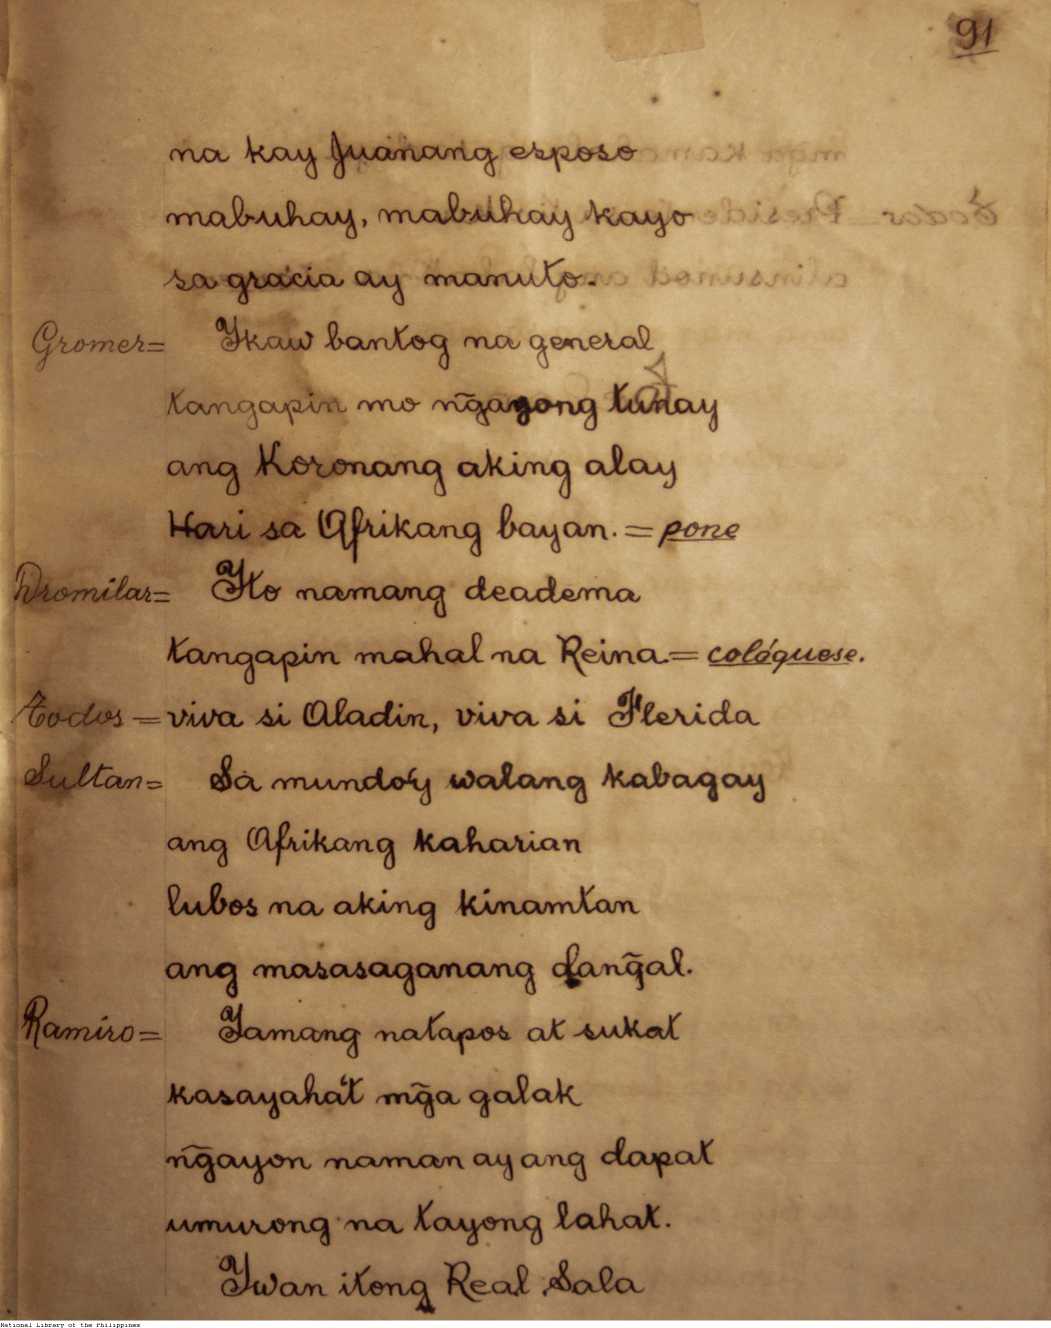 91
na kay Juanang esposo
mabuhay, mabuhay kayo
sa gracia ay manuto.
Gromer= Ykaw bantog na general
tangapin mo n̄gayong tunay
ang Koronang aking alay
Hari sa Afrikang bayan. = pone
Dromilar= Yto namang deadema
tangapin mahal na Reina.= colóquese.
Todos = viva si Aladin, viva si Flerida
Sultan= Sa mundo'y walang kabagay
ang Afrikang kaharian
lubos na aking kinamtan
ang masasaganang dang̃al.
Ramiro= Yamang natapos at sukat
kasayaha't mg̃a galak
n̄gayon naman ay ang dapat
umurong na tayong lahat.
Ywan itong Real Sala
National Library of the Philippines